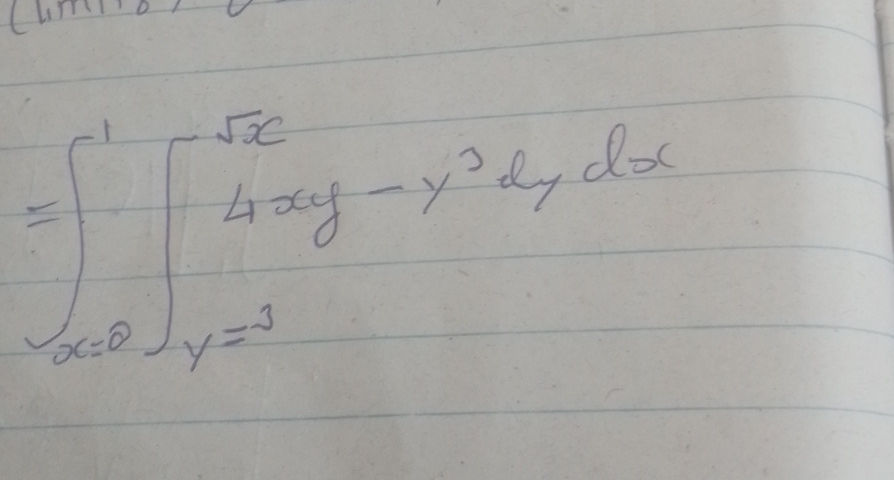 (limits)
= ∫_{x=0}^{1} ∫_{y=3}^{√x} 4xy - y³ dy dx